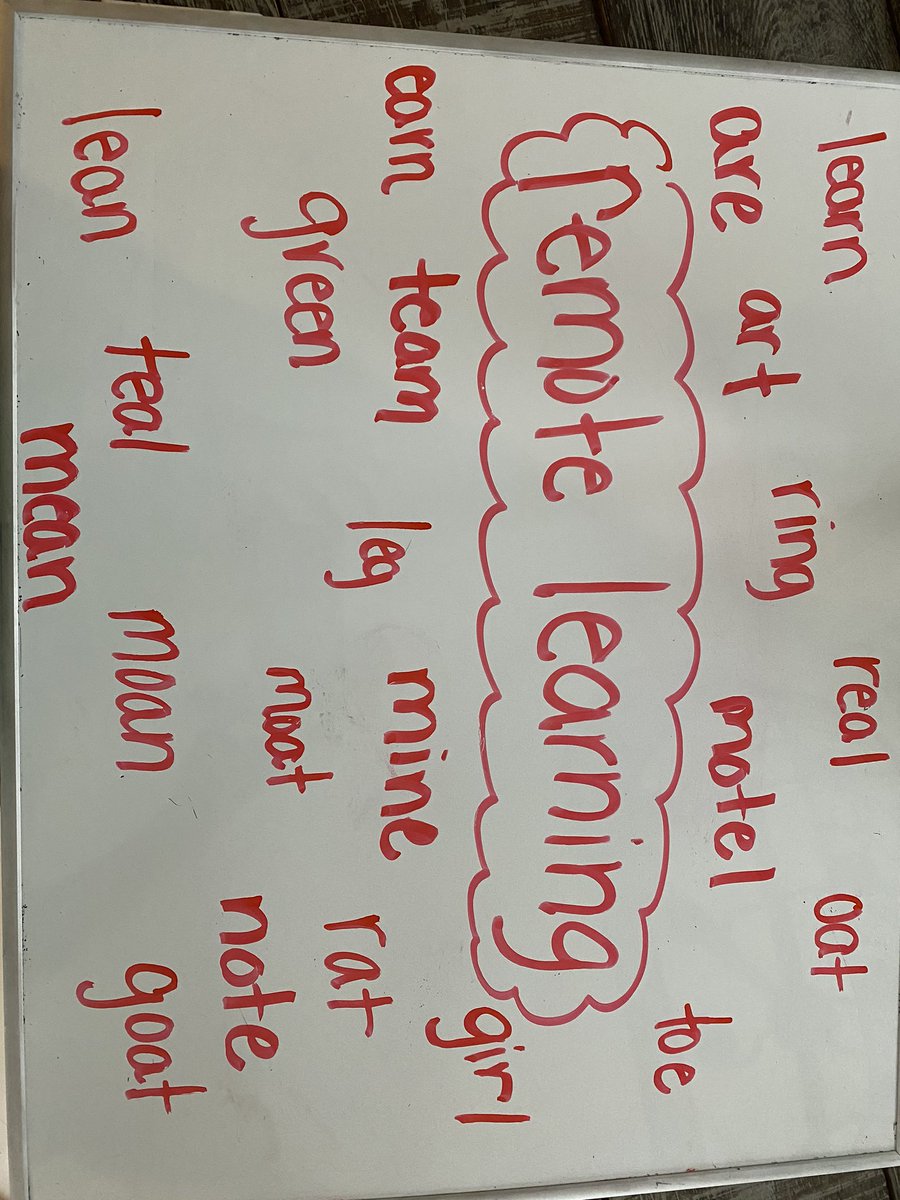 learn
real
oat
are
art
ring
motel
toe
remote learning
earn
team
leg
mine
girl
green
moat
rat
lean
teal
moan
note
mean
goat